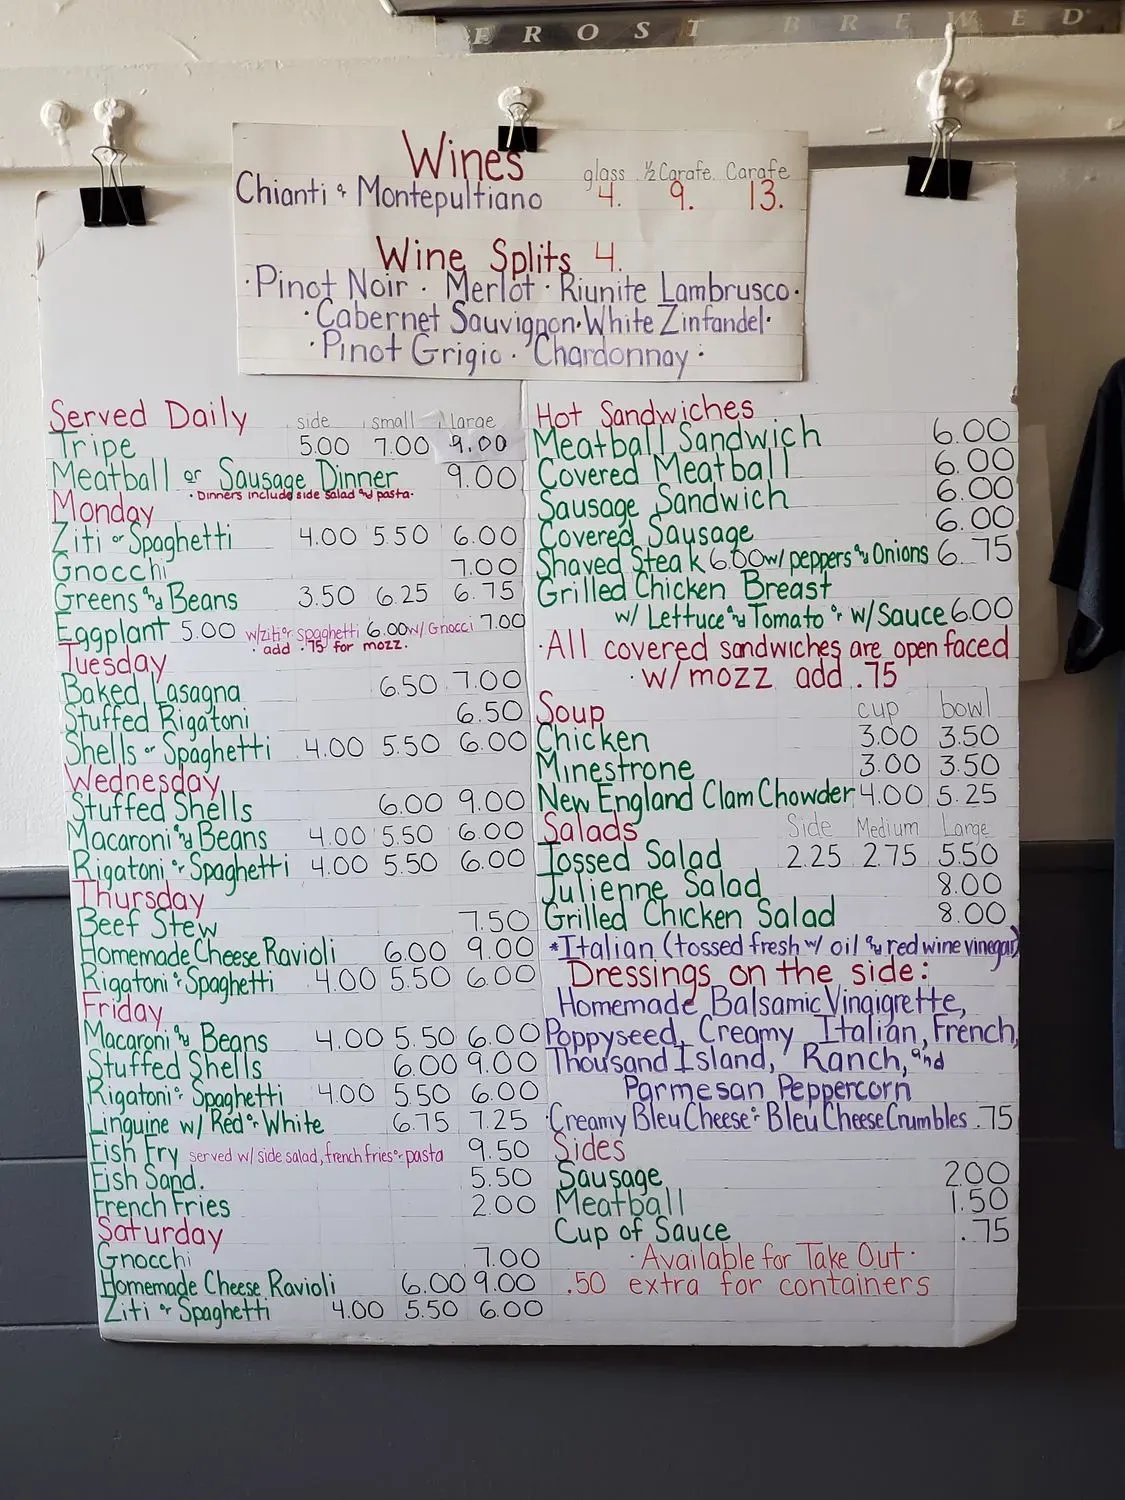 FROST BREWED
Wines
glass ½ Carafe Carafe
Chianti & Montepultiano 4. 9. 13.
Wine Splits 4.
· Pinot Noir · Merlot · Riunite Lambrusco ·
· Cabernet Sauvignon · White Zinfandel ·
· Pinot Grigio · Chardonnay ·
Served Daily side small large
Tripe 5.00 7.00 9.00
Meatball or Sausage Dinner 9.00
· Dinners include side salad and pasta ·
Monday
Ziti or Spaghetti 4.00 5.50 6.00
Gnocchi 7.00
Greens and Beans 3.50 6.25 6.75
Eggplant 5.00 w/ziti or spaghetti 6.00 w/ Gnocci 7.00
· add .75 for mozz.
Tuesday
Baked Lasagna 6.50 7.00
Stuffed Rigatoni 6.50
Shells or Spaghetti 4.00 5.50 6.00
Wednesday
Stuffed Shells 6.00 9.00
Macaroni and Beans 4.00 5.50 6.00
Rigatoni or Spaghetti 4.00 5.50 6.00
Thursday
Beef Stew 7.50
Homemade Cheese Ravioli 6.00 9.00
Rigatoni or Spaghetti 4.00 5.50 6.00
Friday
Macaroni and Beans 4.00 5.50 6.00
Stuffed Shells 6.00 9.00
Rigatoni or Spaghetti 4.00 5.50 6.00
Linguine w/ Red or White 6.75 7.25
Fish Fry served w/ side salad, french fries or pasta 9.50
Fish Sand. 5.50
French Fries 2.00
Saturday
Gnocchi 7.00
Homemade Cheese Ravioli 6.00 9.00
Ziti or Spaghetti 4.00 5.50 6.00
Hot Sandwiches
Meatball Sandwich 6.00
Covered Meatball 6.00
Sausage Sandwich 6.00
Covered Sausage 6.00
Shaved Steak 6.00 w/ peppers and Onions 6.75
Grilled Chicken Breast
w/ Lettuce and Tomato or w/ Sauce 6.00
· All covered sandwiches are open faced
· w/ mozz add .75
Soup cup bowl
Chicken 3.00 3.50
Minestrone 3.00 3.50
New England Clam Chowder 4.00 5.25
Salads Side Medium Large
Tossed Salad 2.25 2.75 5.50
Julienne Salad 8.00
Grilled Chicken Salad 8.00
*Italian (tossed fresh w/ oil and red wine vinegar)
Dressings on the side:
Homemade Balsamic Vingigrette,
Poppyseed, Creamy Italian, French,
Thousand Island, Ranch, and
Parmesan Peppercorn
· Creamy Bleu Cheese or Bleu Cheese Crumbles .75
Sides
Sausage 2.00
Meatball 1.50
Cup of Sauce .75
· Available for Take Out ·
.50 extra for containers